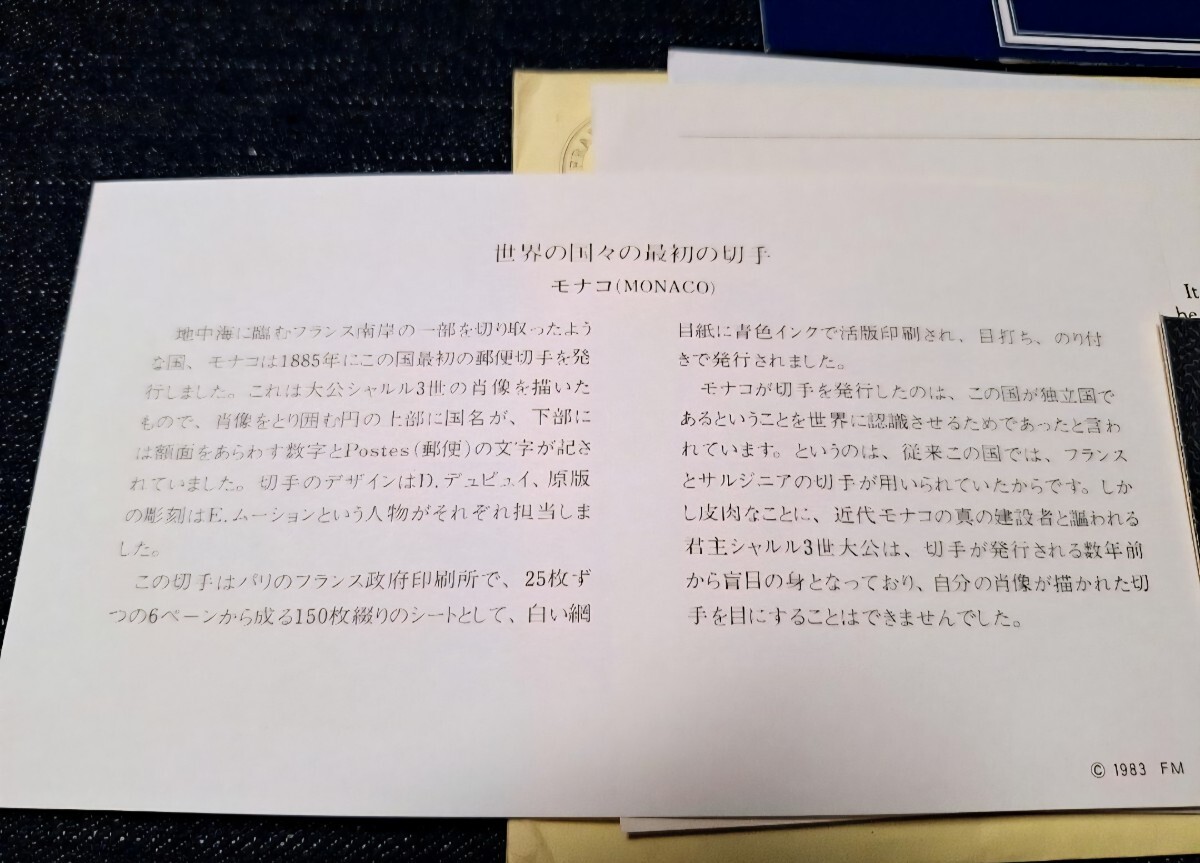 世界の国々の最初の切手
モナコ(MONACO)
地中海に臨むフランス南岸の一部を切り取ったよう
な国、モナコは1885年にこの国最初の郵便切手を発
行しました。これは大公シャルル3世の肖像を描いた
もので、肖像をとり囲む円の上部に国名が、下部に
は額面をあらわす数字とPostes(郵便)の文字が記さ
れていました。切手のデザインはD.デュビュイ、原版
の彫刻はE.ムーションという人物がそれぞれ担当しま
した。
この切手はパリのフランス政府印刷所で、25枚ず
つの6ペーンから成る150枚綴りのシートとして、白い網
目紙に青色インクで活版印刷され、目打ち、のり付
きで発行されました。
モナコが切手を発行したのは、この国が独立国で
あるということを世界に認識させるためであったと言わ
れています。というのは、従来この国では、フランス
とサルジニアの切手が用いられていたからです。しか
し皮肉なことに、近代モナコの真の建設者と謳われる
君主シャルル3世大公は、切手が発行される数年前
から盲目の身となっており、自分の肖像が描かれた切
手を目にすることはできませんでした。
© 1983 FM
It
be